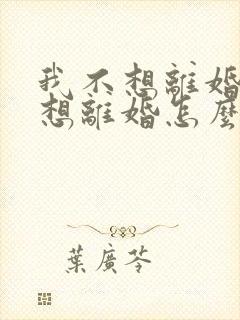 我不想離婚
想離婚怎麼
葉廣芩